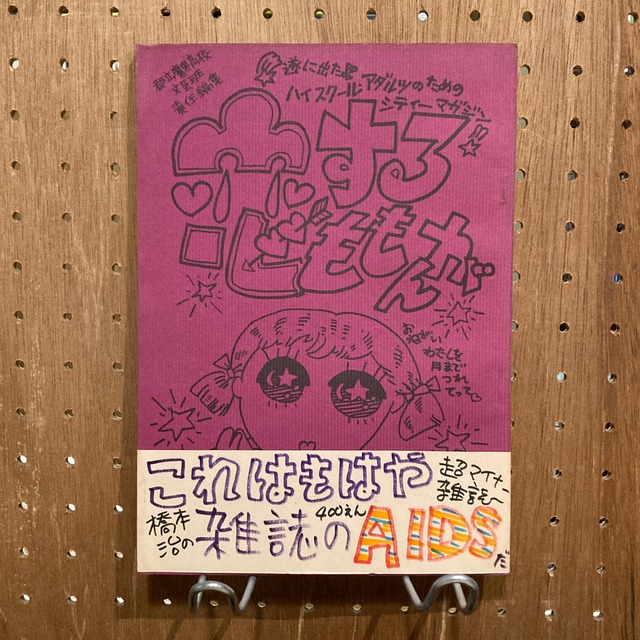 都立魔界高校
文芸班
責任編集
遂に出た!! アダルツのための
ハイスクール シティーマガジン!!
恋する
ももんが
おねがい!
わたしを
月まで
つれ
てって♡
これはもはや
超マイナー
雑誌〜
橋本
治の
雑誌の
400えん
AIDS
だ